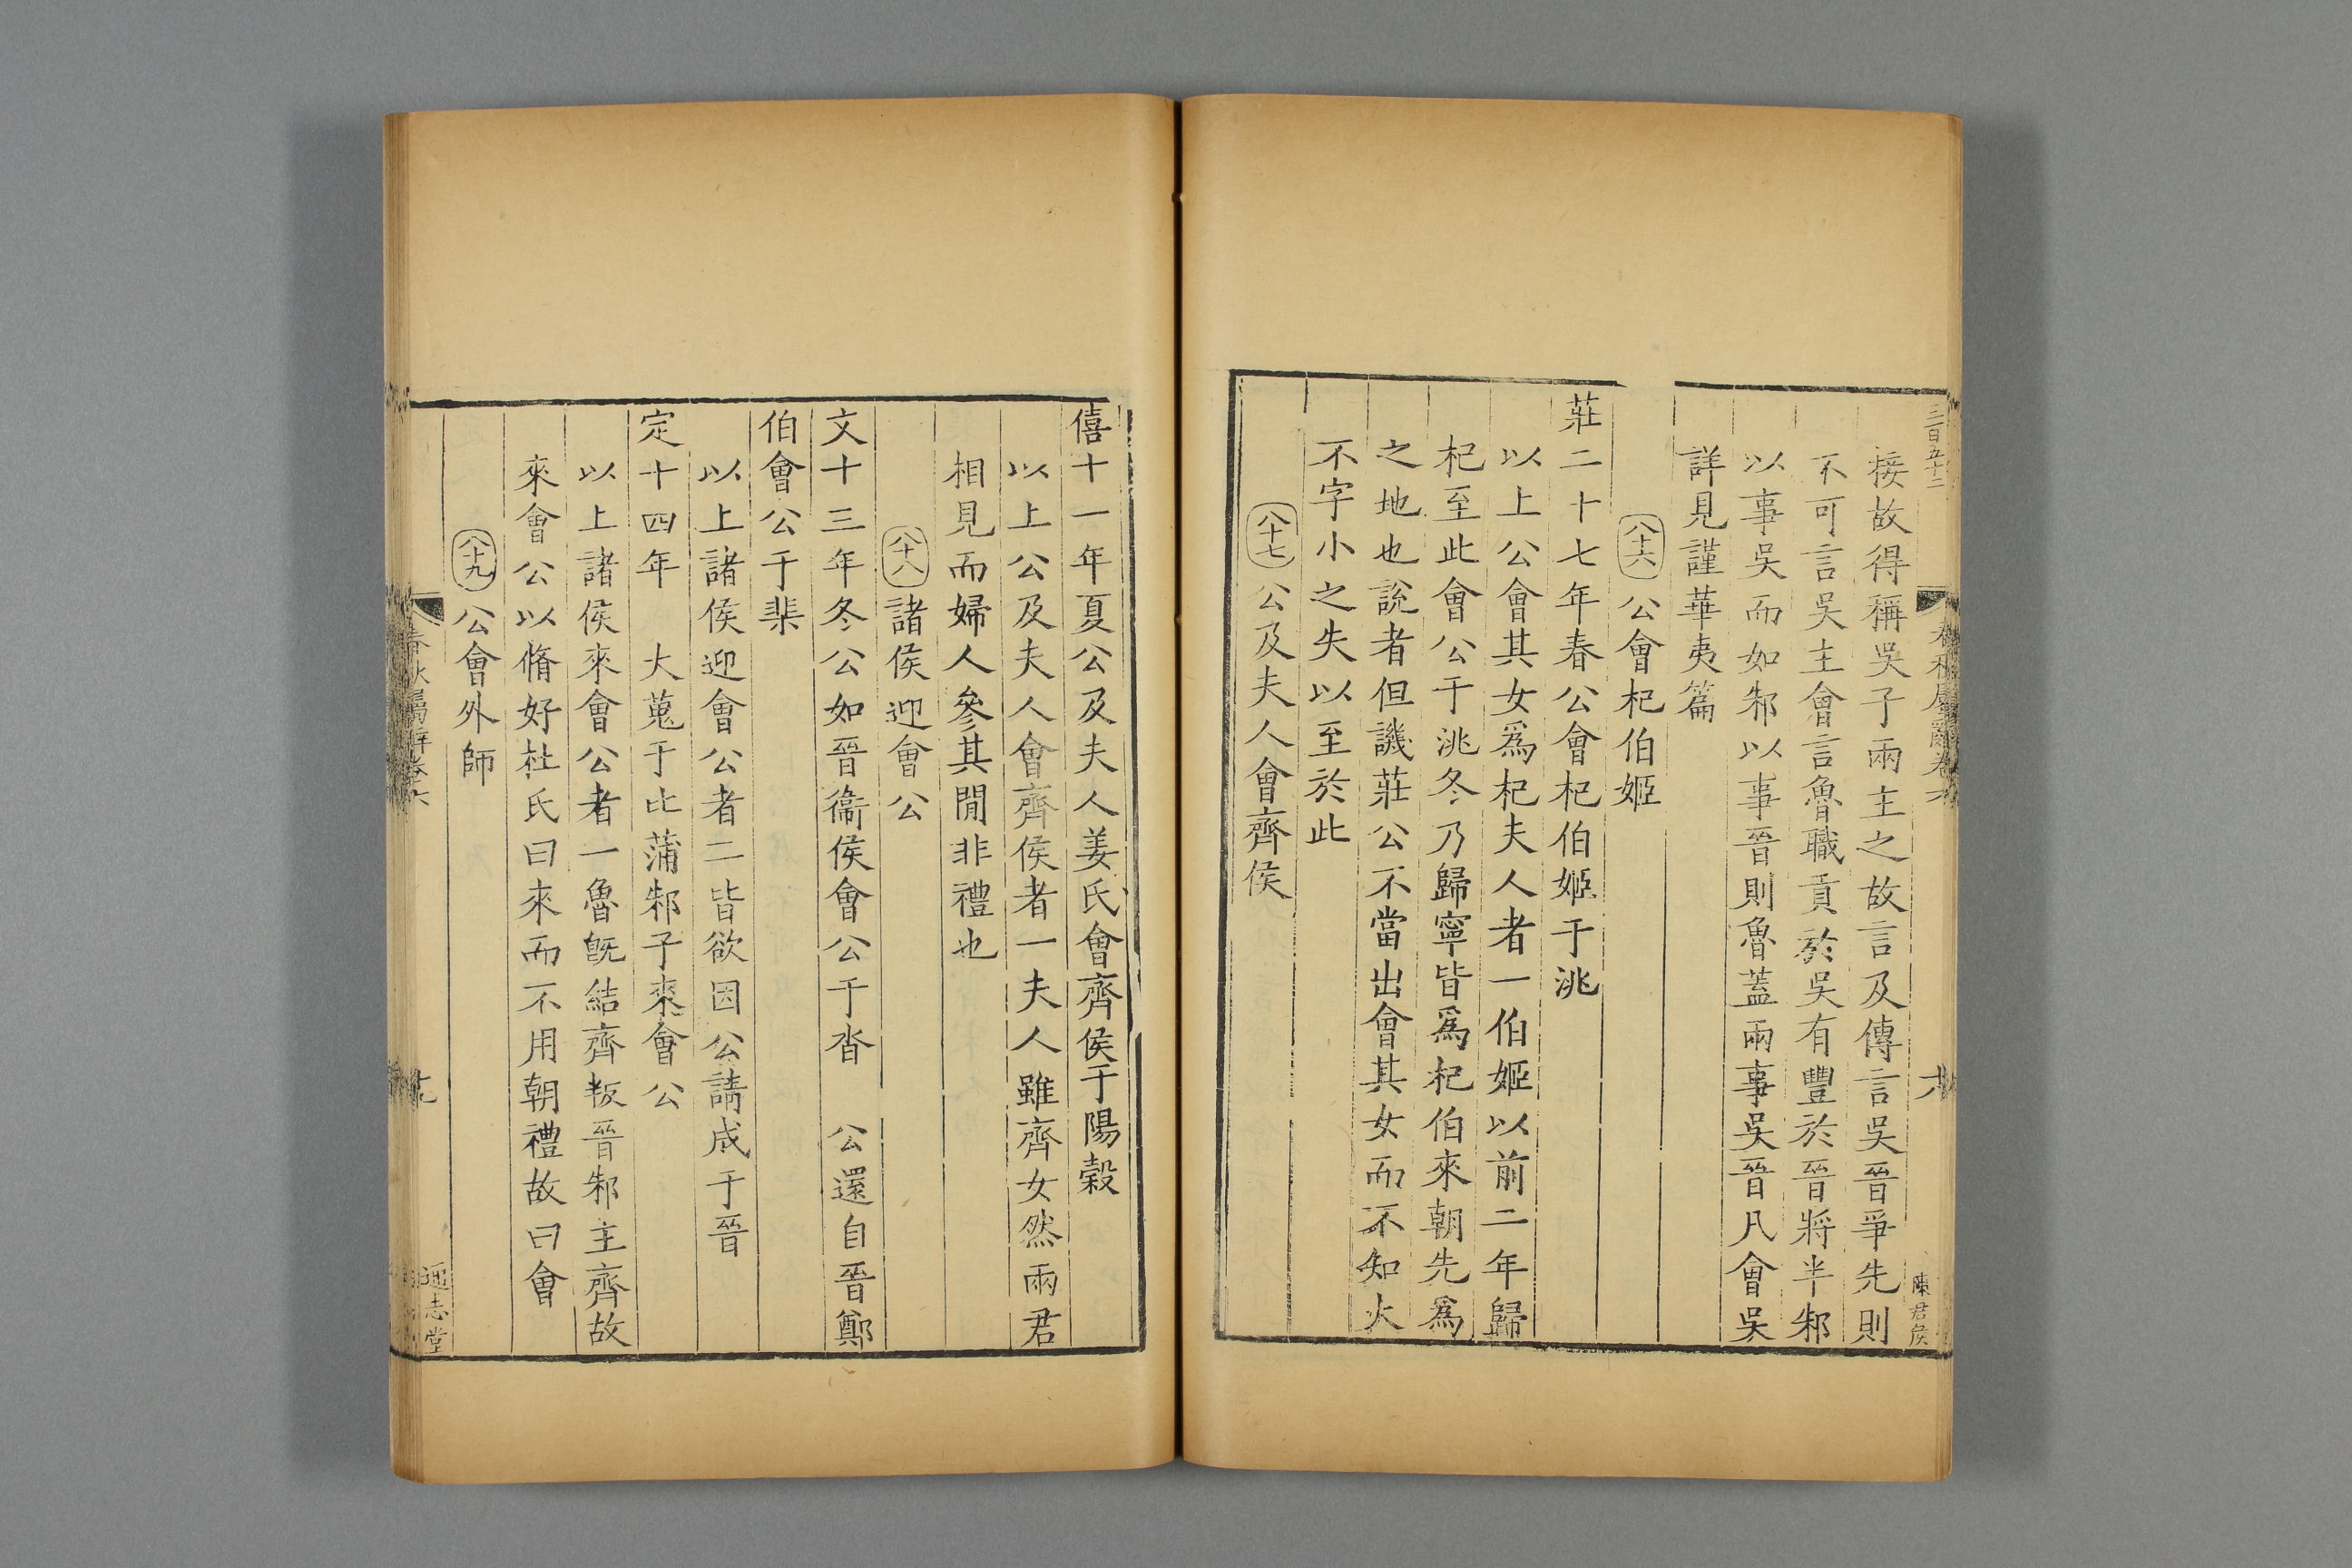 三百五十二
接故得稱吳子兩主之故言及傳言吳晉爭先則
不可言吳主會言魯職貢於吳有豐於晉將半邾
以事吳而如邾以事晉則魯蓋兩事吳晉凡會吳
詳見謹華夷篇
八十六 公會杞伯姬
莊二十七年春公會杞伯姬于洮
以上公會其女爲杞夫人者一伯姬以前二年歸
杞至此會公于洮冬乃歸寧皆爲杞伯來朝先爲
之地也說者但譏莊公不當出會其女而不知大
不字小之失以至於此
八十七 公及夫人會齊侯
僖十一年夏公及夫人姜氏會齊侯于陽穀
以上公及夫人會齊侯者一夫人雖齊女然兩君
相見而婦人參其閒非禮也
八十八 諸侯迎會公
文十三年冬公如晉衞侯會公于沓 公還自晉鄭
伯會公于棐
以上諸侯迎會公者二皆欲因公請成于晉
定十四年 大蒐于比蒲邾子來會公
以上諸侯來會公者一魯旣結齊叛晉邾主齊故
來會公以脩好杜氏曰來而不用朝禮故曰會
八十九 公會外師
春秋屬辭卷六
通志堂